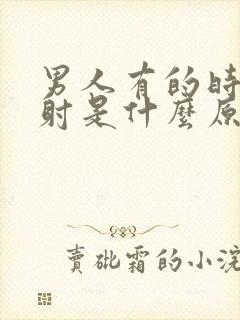 男人有的時
射是什麼原
賣砒霜的小浣